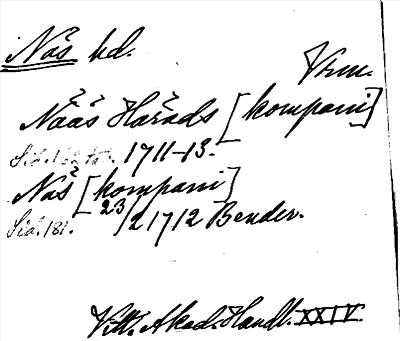 Näs hd.
Vsm.
Nääs Härads [kompani]
Sid. 1711-13.
Näs [kompani]
Sid. 181. 23/2 1712 Bender.
Vitt. Akad. Handl. XXIV.